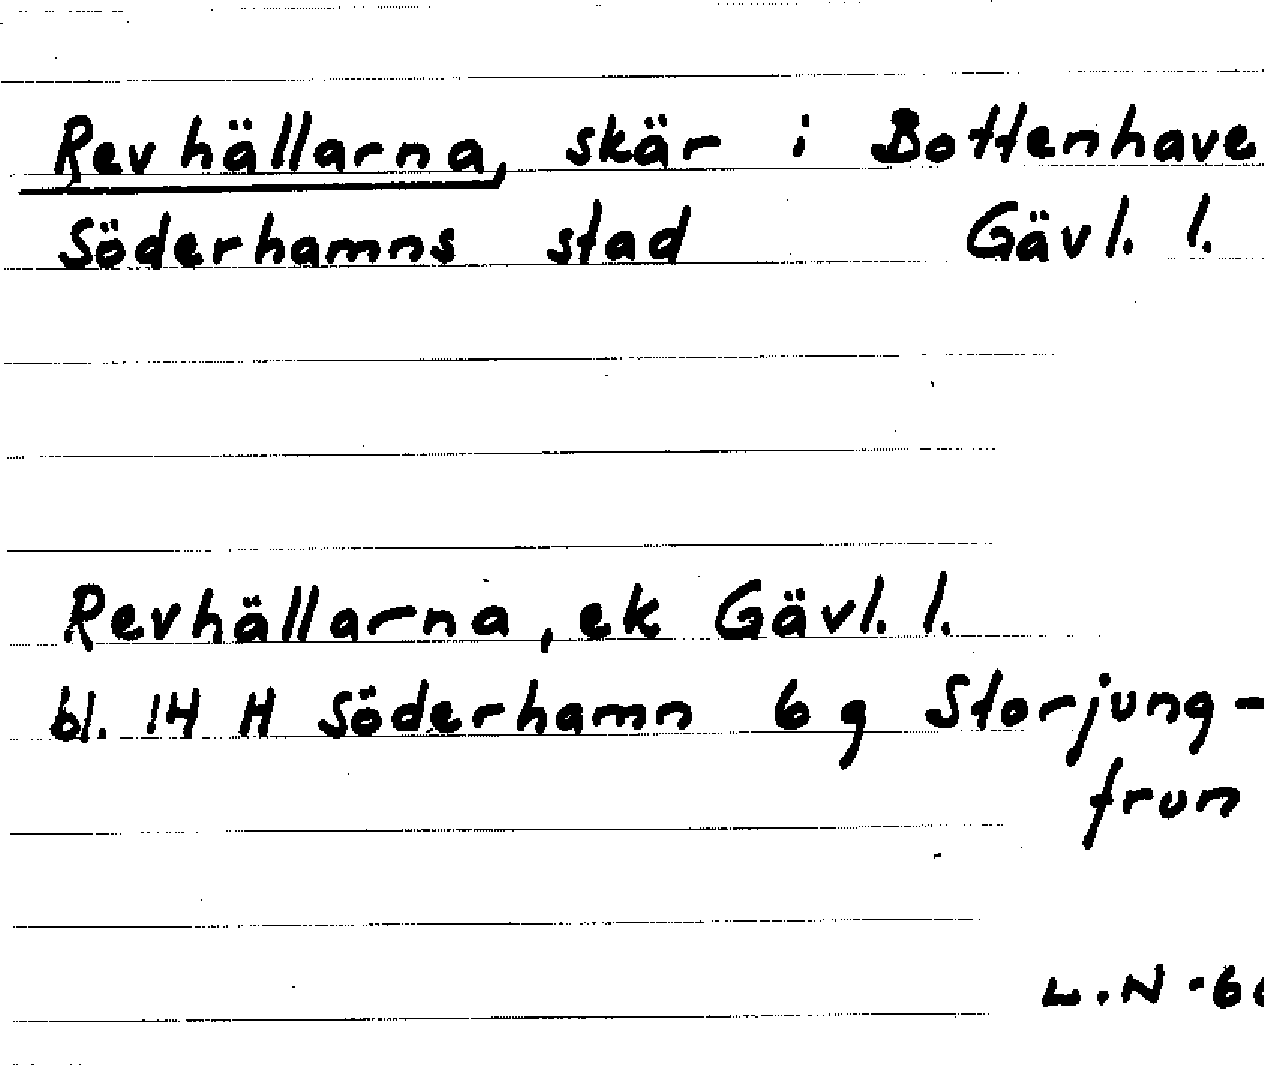 Revhällarna, skär i Bottenhave
Söderhamns stad Gävl. l.
Revhällarna, ek Gävl. l.
bl. 14 H Söderhamn 6 g Storjung-
frun
L.N -66